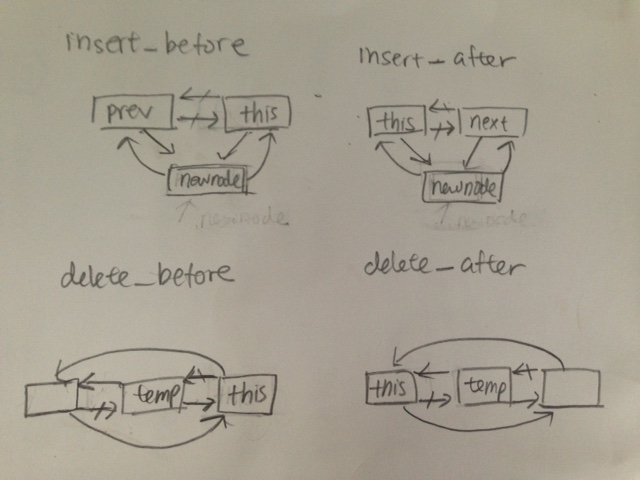 insert_before
prev this
newnode
newnode
insert_after
this next
newnode
newnode
delete_before
temp this
delete_after
this temp